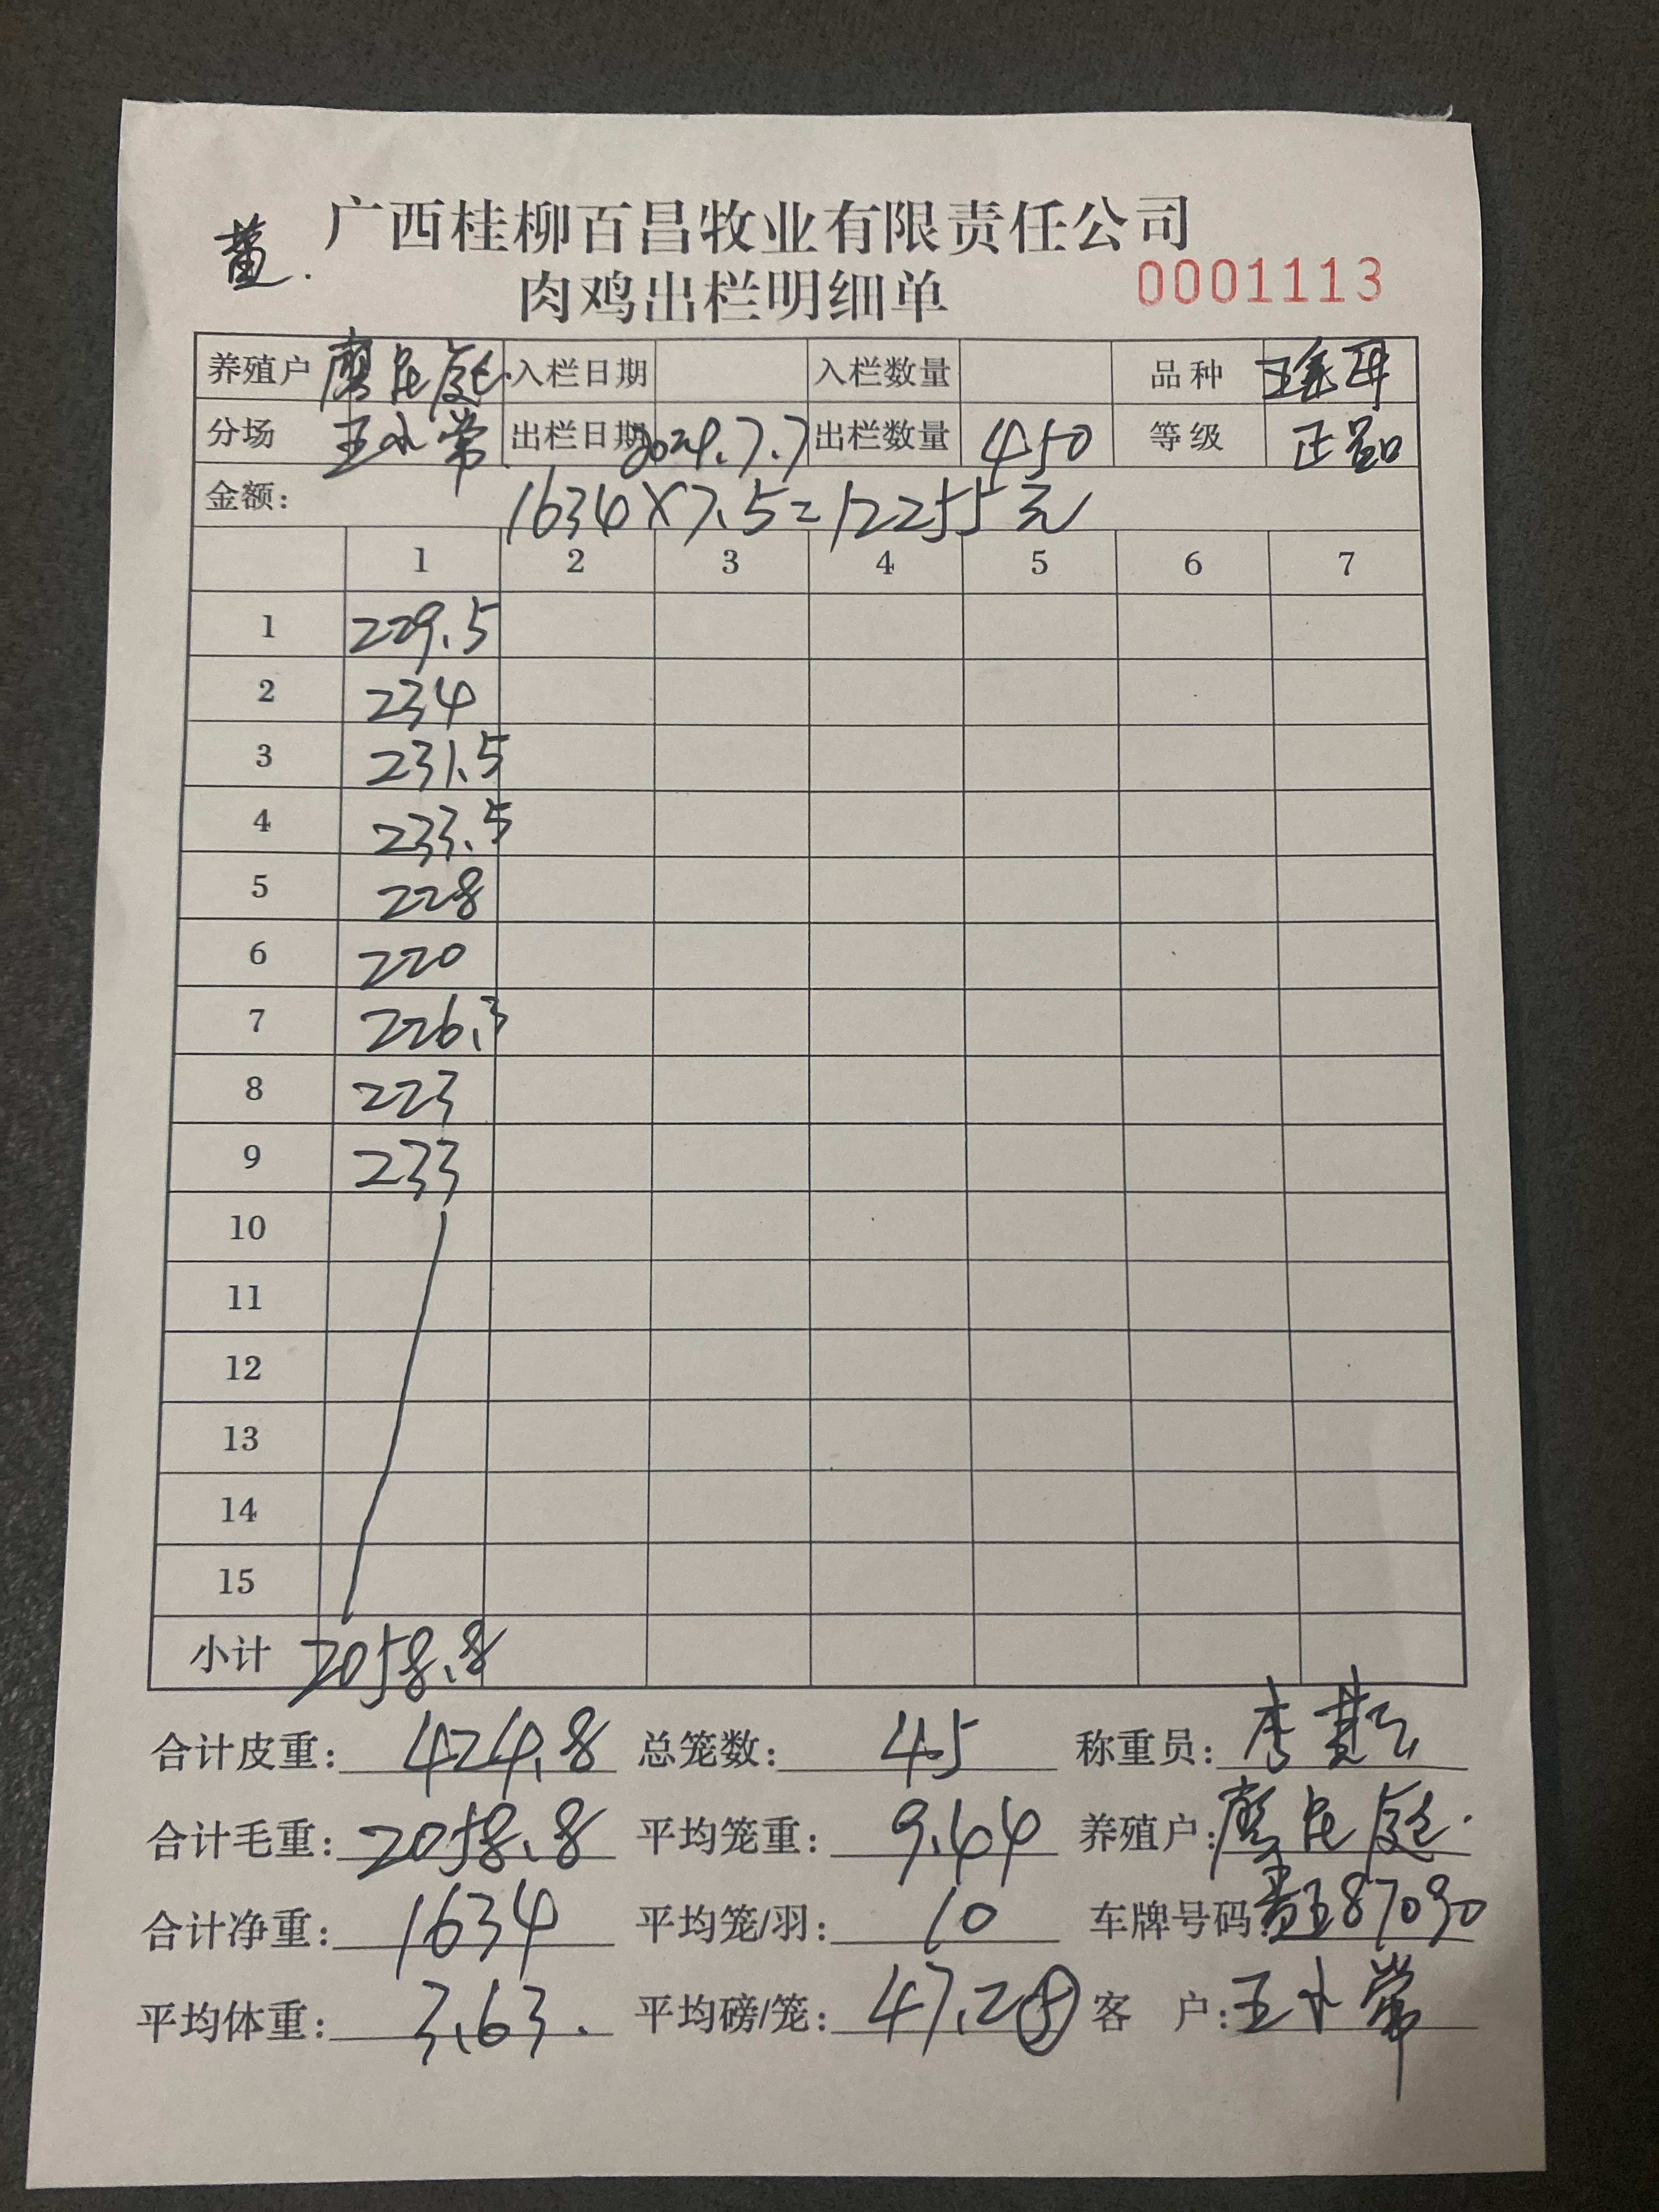 广西桂柳百昌牧业有限责任公司
肉鸡出栏明细单 0001113
养殖户 入栏日期 入栏数量 品种
分场 王小常 出栏日期 2024.7.7 出栏数量 450 等级 正品
金额: 1634×7.5=12255元
1 2 3 4 5 6 7
1 229.5
2 234
3 231.5
4 233.5
5 228
6 220
7 226.3
8 223
9 233
10
11
12
13
14
15
小计 2058.8
合计皮重: 424.8 总笼数: 45 称重员: 李
合计毛重: 2058.8 平均笼重: 9.44 养殖户:
合计净重: 1634 平均笼/羽: 10 车牌号码: 87090
平均体重: 3.63. 平均磅/笼: 47.2 客户: 王小常